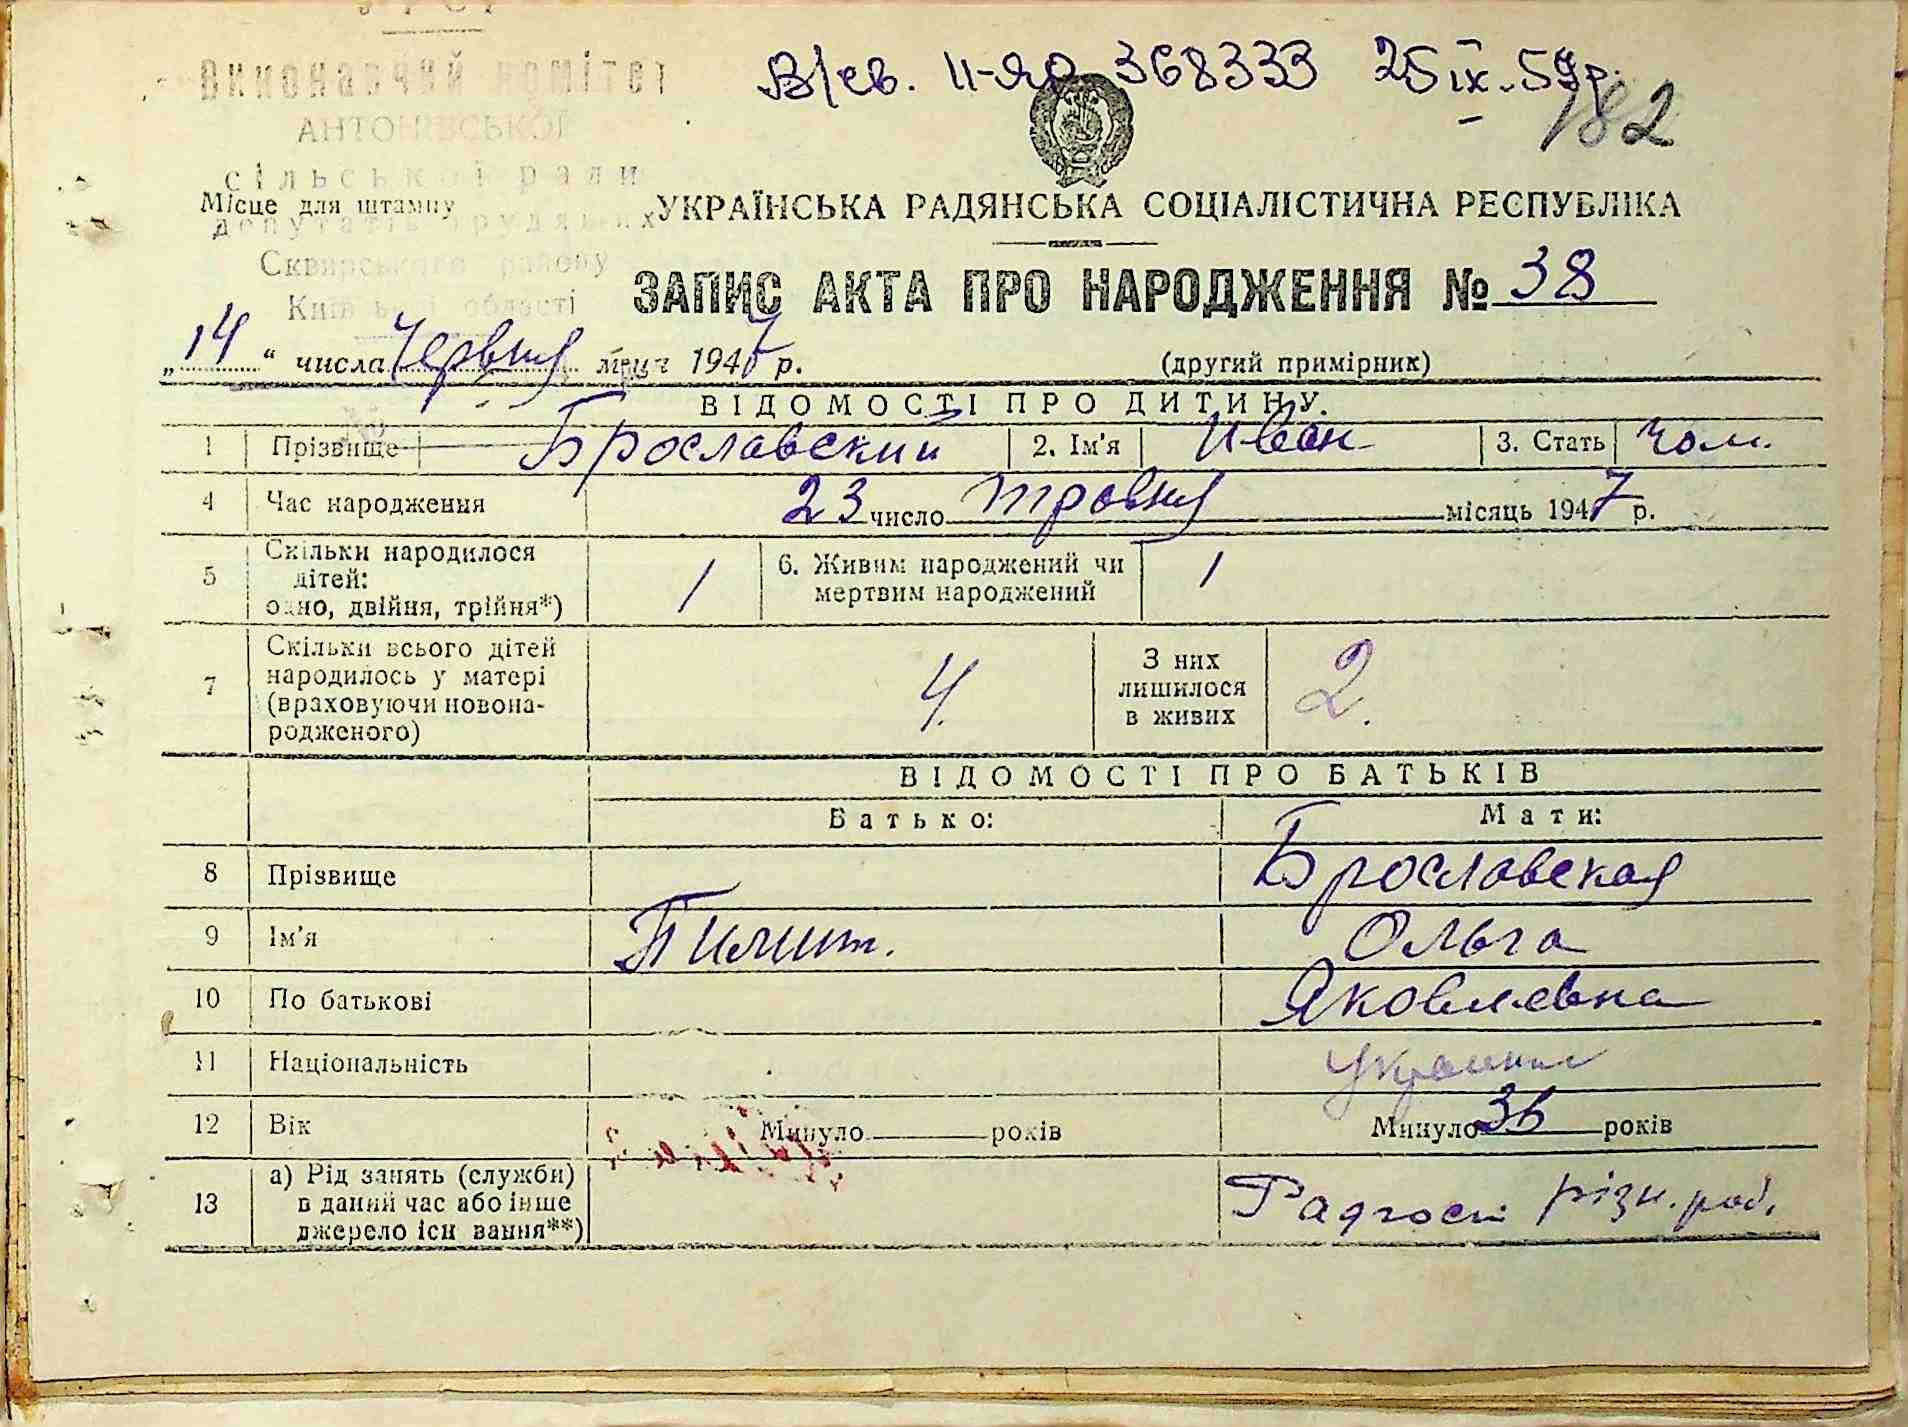 УРСР
Виконавчий комітет
АНТОНІВСЬКОЇ
сільської ради
Місце для штампу
депутатів трудящих
Сквирського району
Київської області
В/св. II-ЯР 368333 25 ІХ. 59р.
182
УКРАЇНСЬКА РАДЯНСЬКА СОЦІАЛІСТИЧНА РЕСПУБЛІКА
ЗАПИС АКТА ПРО НАРОДЖЕННЯ № 38
„14“ числа Червня місяця 1947 р. (другий примірник)
ВІДОМОСТІ ПРО ДИТИНУ.
1 Прізвище Брославский 2. Ім'я Иван 3. Стать Чол.
4 Час народження 23 число Травня місяць 1947 р.
5 Скільки народилося дітей: одно, двійня, трійня*) 1 6. Живим народжений чи мертвим народжений 1
7 Скільки всього дітей народилось у матері (враховуючи новонародженого) 4. З них лишилося в живих 2.
ВІДОМОСТІ ПРО БАТЬКІВ
Батько: Мати:
8 Прізвище Брославская
9 Ім'я Пилип. Ольга
10 По батькові Яковлевна
11 Національність
12 Вік Минуло року Минуло 36 років
13 а) Рід занять (служби) в даний час або інше джерело існування**) Радгосп різн. роб.